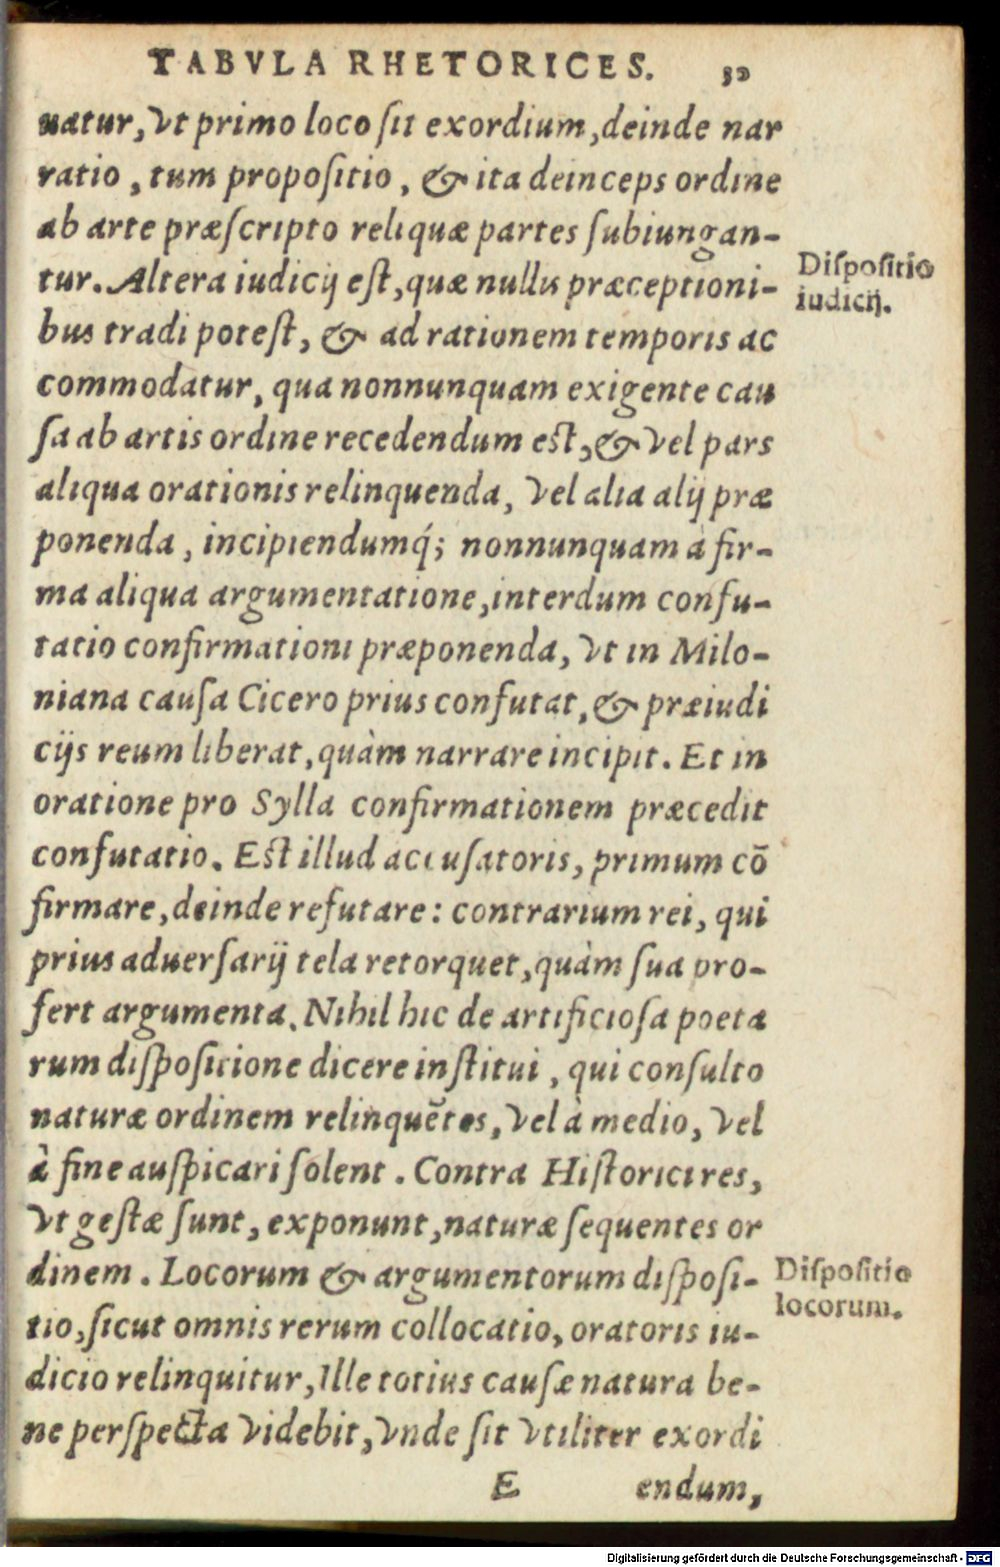 TABVLA RHETORICES. 32
uatur, vt primo loco sit exordium, deinde nar
ratio, tum propositio, & ita deinceps ordine
ab arte præscripto reliquæ partes subiungan-
tur. Altera iudicij est, quæ nullis præceptioni-
Dispositio
iudicij.
bus tradi potest, & ad rationem temporis ac
commodatur, qua nonnunquam exigente cau
sa ab artis ordine recedendum est, & vel pars
aliqua orationis relinquenda, vel alia alij præ
ponenda, incipiendumq́; nonnunquam à fir-
ma aliqua argumentatione, interdum confu-
tatio confirmationi præponenda, vt in Milo-
niana causa Cicero prius confutat, & præiudi
cijs reum liberat, quàm narrare incipit. Et in
oratione pro Sylla confirmationem præcedit
confutatio. Est illud accusatoris, primum cō
firmare, deinde refutare: contrarium rei, qui
prius aduersarij tela retorquet, quàm sua pro-
fert argumenta. Nihil hic de artificiosa poeta
rum dispositione dicere institui, qui consulto
naturæ ordinem relinquẽtes, vel à medio, vel
à fine auspicari solent. Contra Historici res,
vt gestæ sunt, exponunt, naturæ sequentes or
dinem. Locorum & argumentorum disposi-
Dispositio
locorum.
tio, sicut omnis rerum collocatio, oratoris iu-
dicio relinquitur, Ille totius causæ natura be-
ne perspecta videbit, vnde sit vtiliter exordi
E endum,
Digitalisierung gefördert durch die Deutsche Forschungsgemeinschaft - DFG